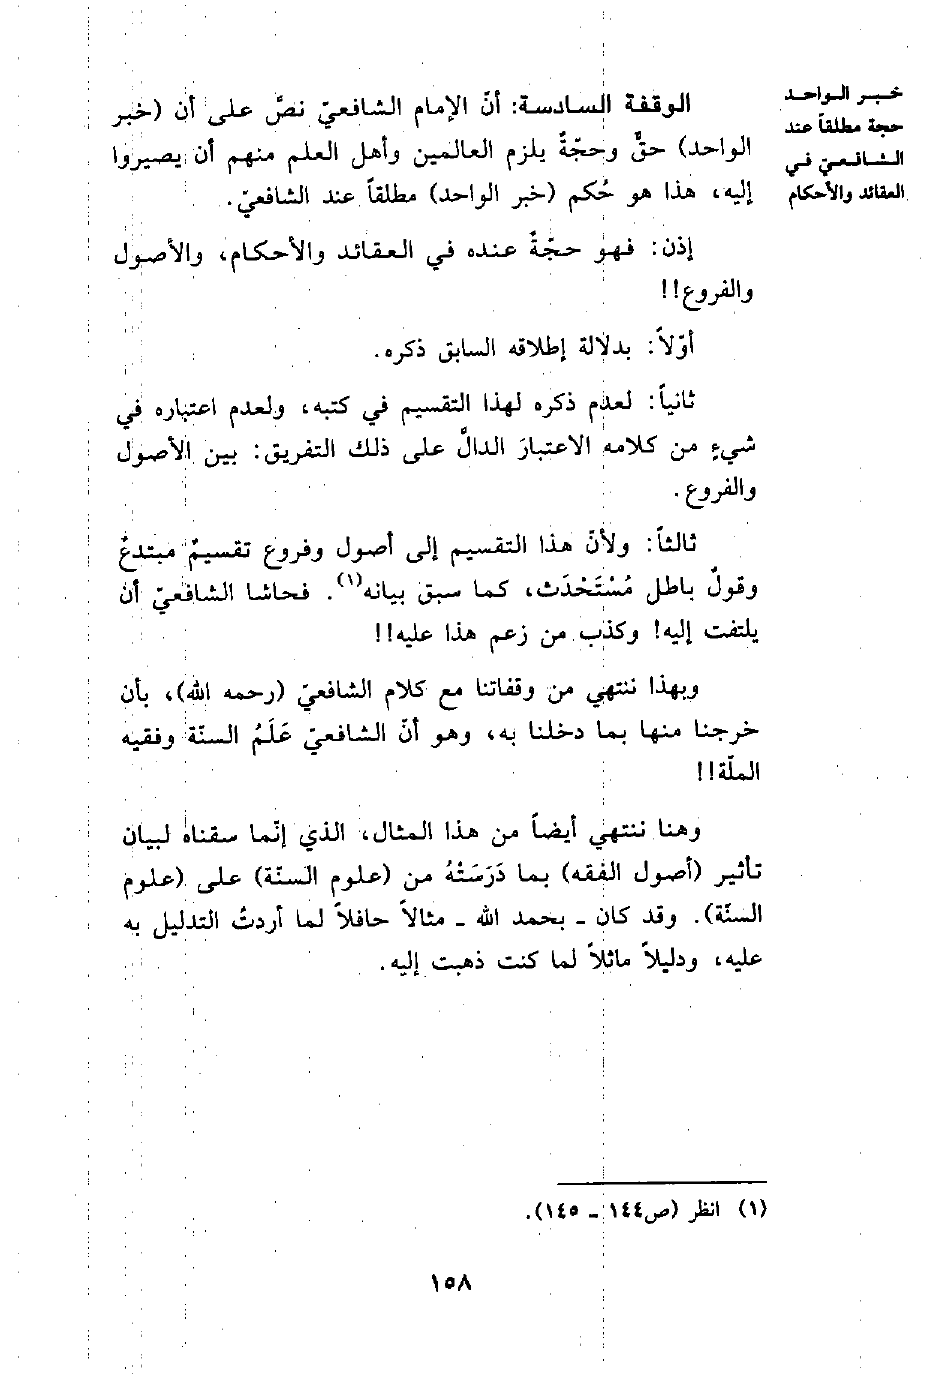 خبر الواحد
حجة مطلقاً عند
الشافعيّ في
العقائد والأحكام
الوقفة السادسة: أنّ الإمام الشافعيّ نصَّ على أن (خبر
الواحد) حقٌّ وحجّةٌ يلزم العالمين وأهل العلم منهم أن يصيروا
إليه، هذا هو حُكم (خبر الواحد) مطلقاً عند الشافعيّ.
إذن: فهو حجّةٌ عنده في العقائد والأحكام، والأصول
والفروع!!
أوّلاً: بدلالة إطلاقه السابق ذكره.
ثانياً: لعدم ذكره لهذا التقسيم في كتبه، ولعدم اعتباره في
شيءٍ من كلامه الاعتبارَ الدالَّ على ذلك التفريق: بين الأصول
والفروع.
ثالثاً: ولأنّ هذا التقسيم إلى أصول وفروع تقسيمٌ مبتدعٌ
وقولٌ باطل مُسْتَحْدَث، كما سبق بيانه(١). فحاشا الشافعيّ أن
يلتفت إليه! وكذب من زعم هذا عليه!!
وبهذا ننتهي من وقفاتنا مع كلام الشافعيّ (رحمه الله)، بأن
خرجنا منها بما دخلنا به، وهو أنّ الشافعيّ عَلَمُ السنّة وفقيه
الملّة!!
وهنا ننتهي أيضاً من هذا المثال، الذي إنّما سقناه لبيان
تأثير (أصول الفقه) بما دَرَسَتْهُ من (علوم السنّة) على (علوم
السنّة). وقد كان ـ بحمد الله ـ مثالاً حافلاً لما أردتُ التدليل به
عليه، ودليلاً ماثلاً لما كنت ذهبت إليه.
(١) انظر (ص١٤٤ ـ ١٤٥).
١٥٨